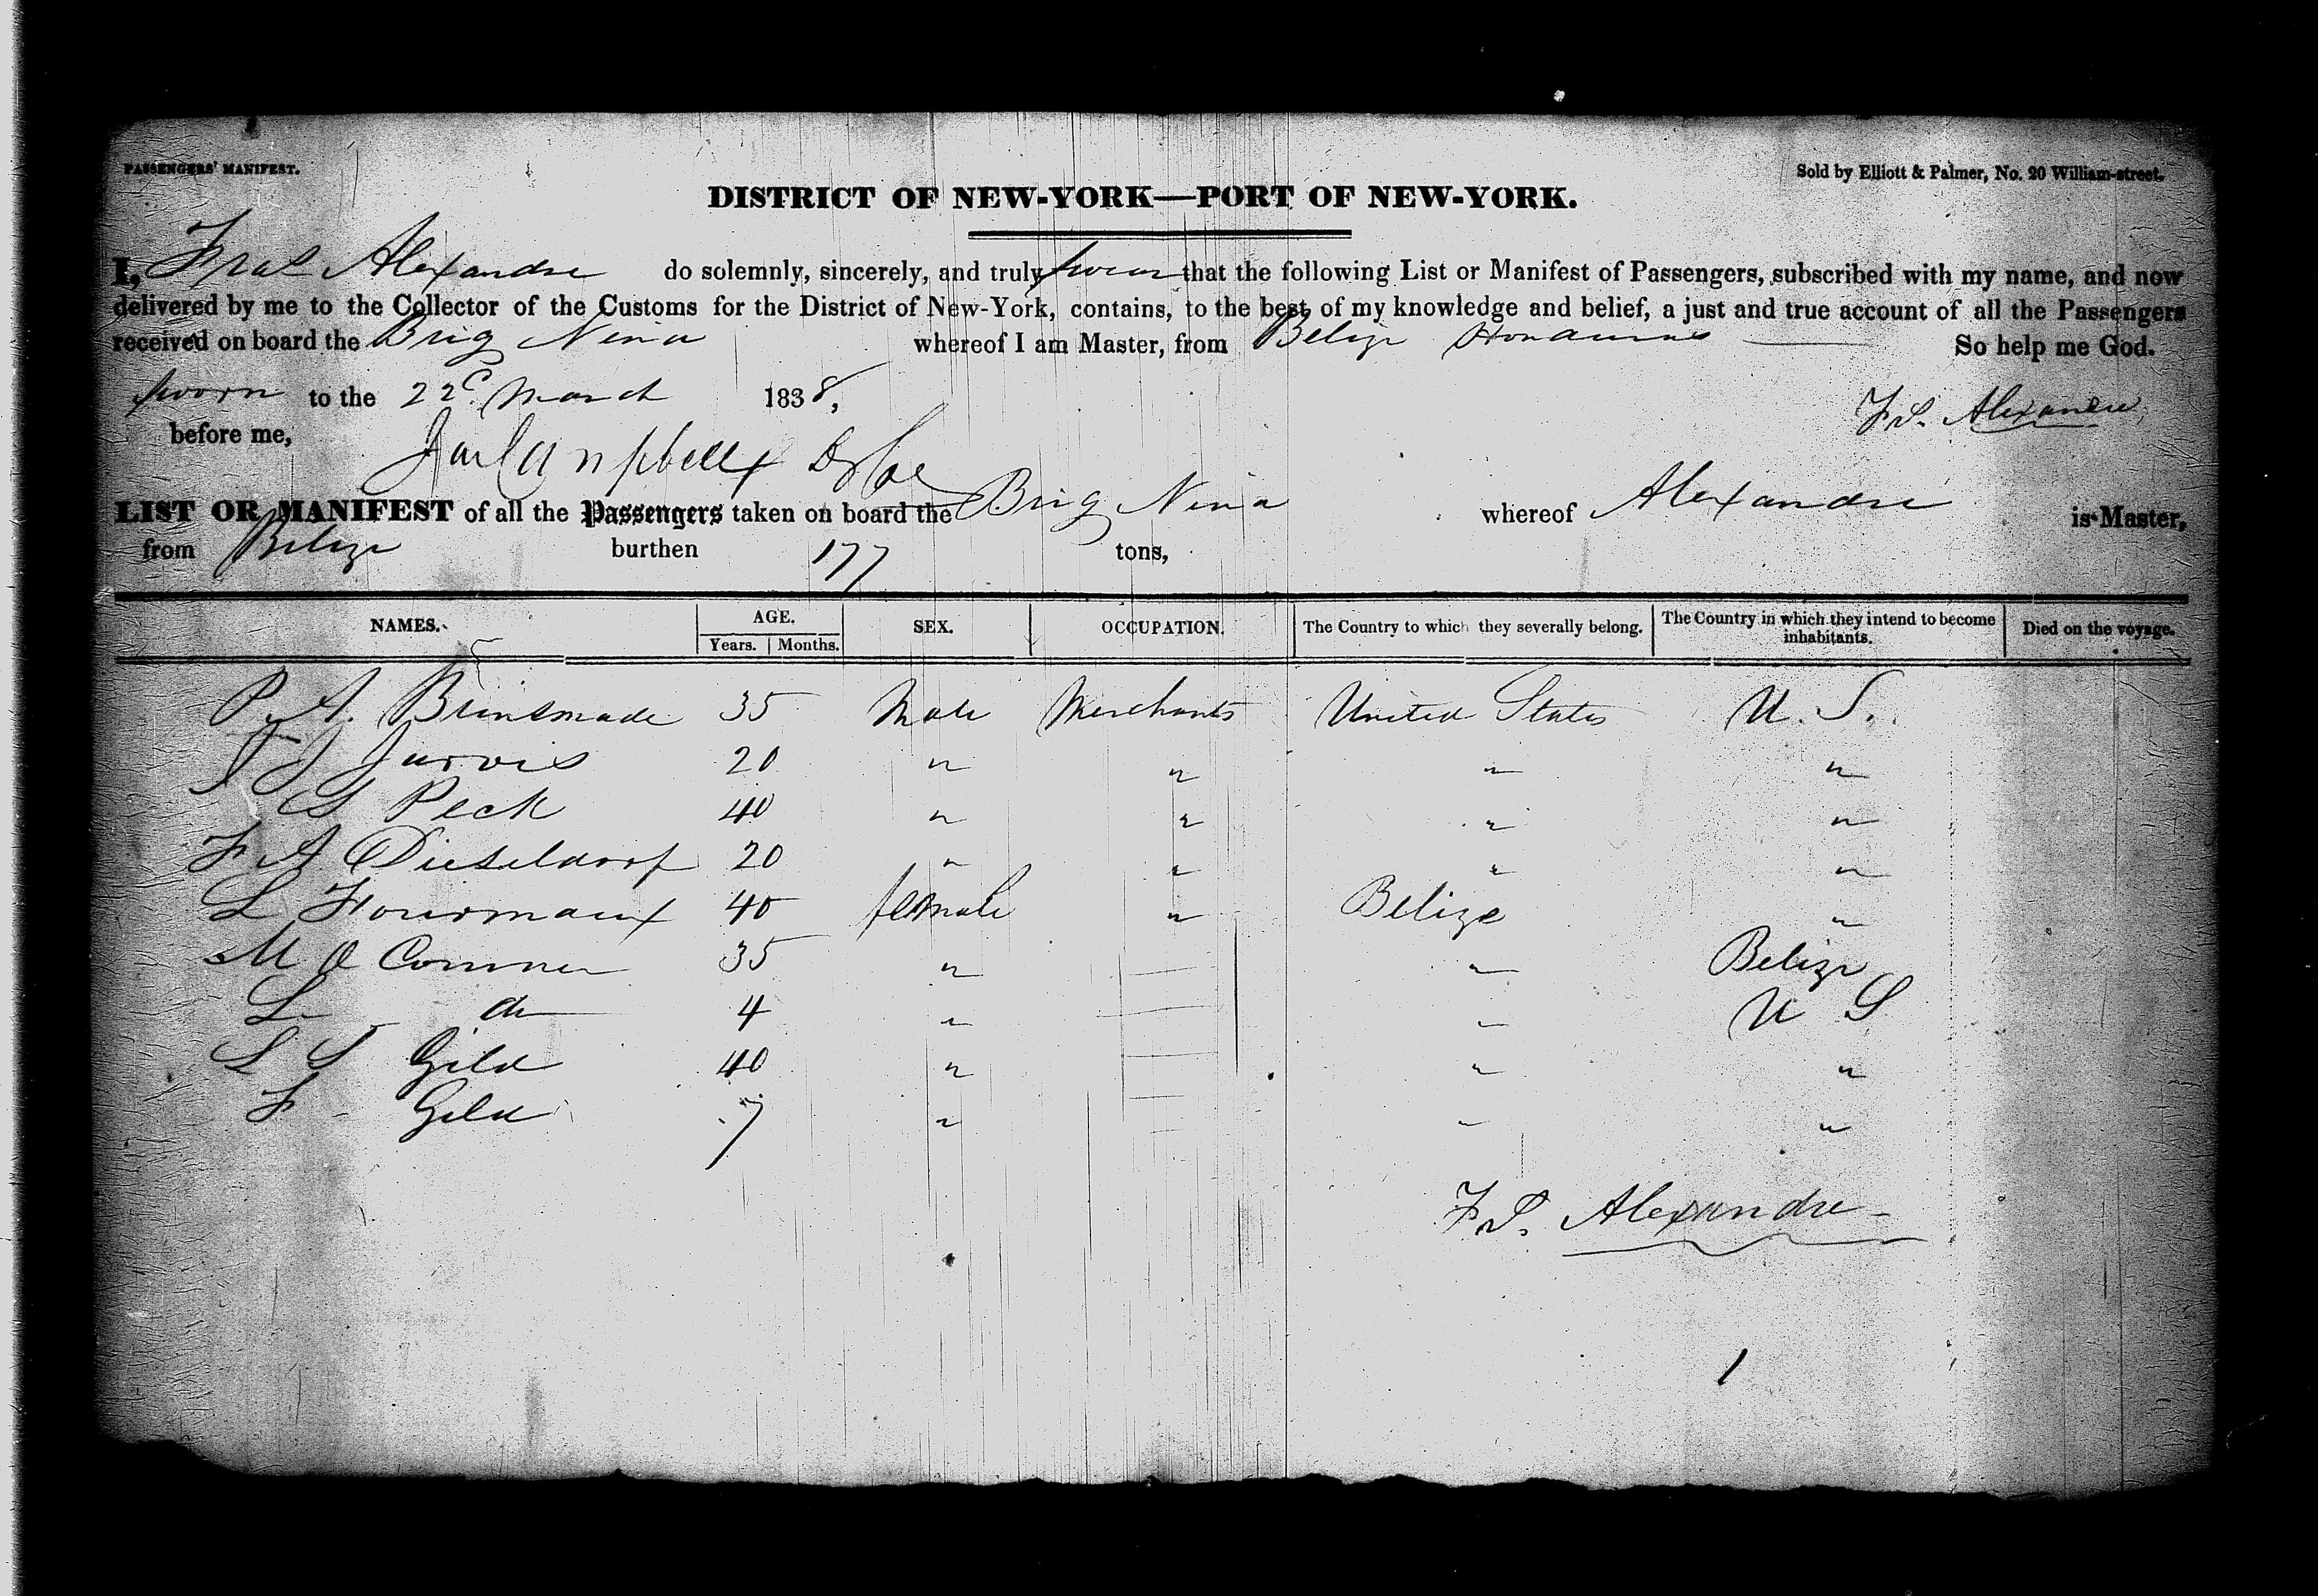 PASSENGERS' MANIFEST.
Sold by Elliott & Palmer, No. 20 William-street.
DISTRICT OF NEW-YORK—PORT OF NEW-YORK.
I, Alexandre do solemnly, sincerely, and truly swear that the following List or Manifest of Passengers, subscribed with my name, and now
delivered by me to the Collector of the Customs for the District of New-York, contains, to the best of my knowledge and belief, a just and true account of all the Passengers
received on board the Brig Nina whereof I am Master, from Belize Honduras So help me God.
sworn to the 22d March 1838,
Fs. Alexandre
before me,
Campbell
LIST OR MANIFEST of all the Passengers taken on board the Brig Nina whereof Alexandre is Master,
from Belize burthen 177 tons,
NAMES. AGE. SEX. OCCUPATION. The Country to which they severally belong. The Country in which they intend to become inhabitants. Died on the voyage.
Years. Months.
P. A. Brinsmade 35 Male Merchants United States U. S.
J J Jarvis 20 " " " "
S Peck 40 " " " "
F A Dieseldorf 20 " " " "
L Fourmaux 40 female " Belize "
M O Conner 35 " " Belize
L do 4 " " U S
L S Gild 40 " " "
F Gild 7 " " "
Fs. Alexandre
1